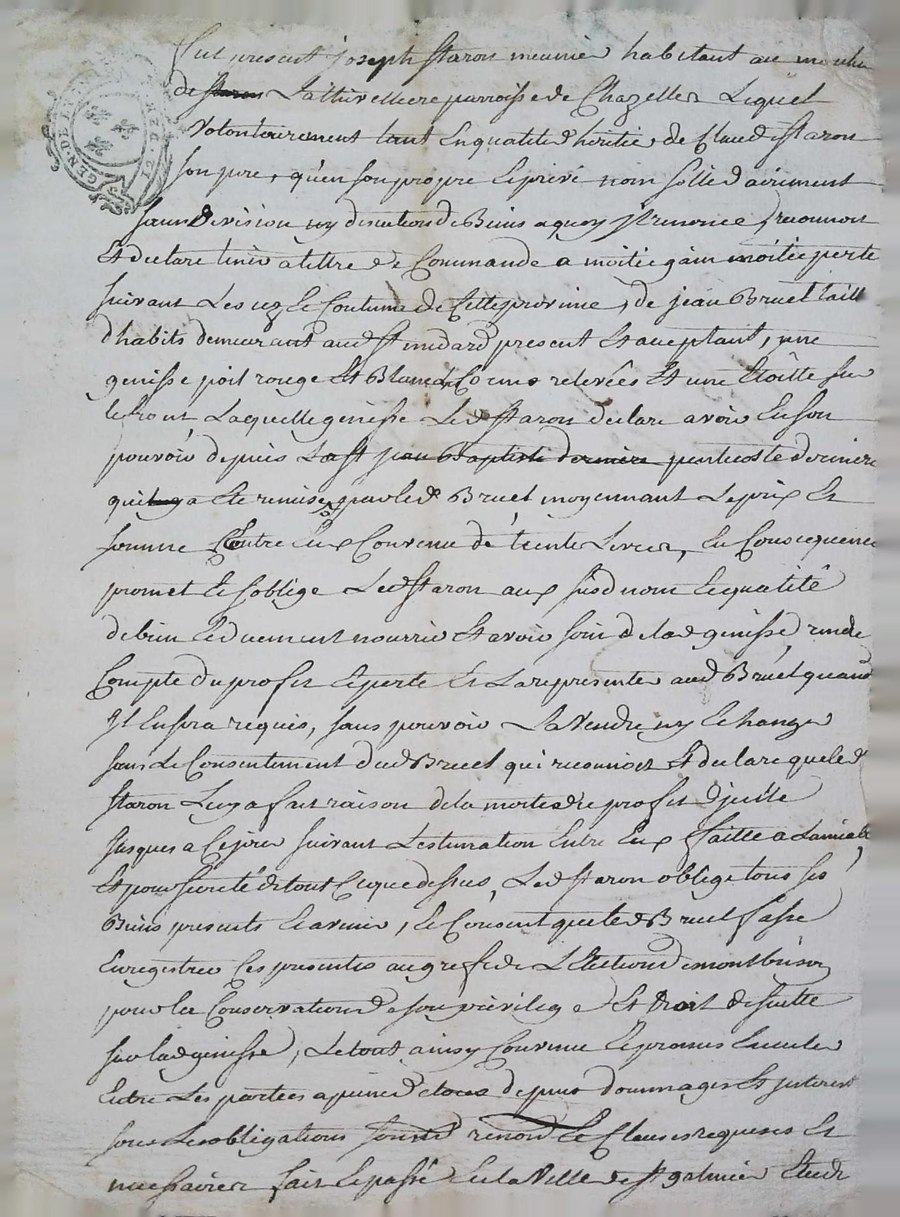 Fut present joseph staron meunier habitant au moulin
de staron Lathivelliere parroisse de Chazelles Lequel
Volontairement tant En qualité d'heritier de Claude staron
son pere, qu'en son propre Et privé nom sollidairement
sans Division ny discution de Biens a quoy jl renonce, reconnoit
Et declare tenir a tittre de Commande a moitié gain moitié perte
suivant Les uz Et Coutume de Cette province, de jean Bruel taill
d'habits demeurant aud St medard present Et aceptant, une
genisse poil rouge Et Blanc, Cornes relevées Et une Etoille sur
le front, Laquelle genisse Led staron declare avoir En son
pouvoir depuis La St jean Baptiste derniere pentecoste derniere
qui luy a Ete remise par led Bruel moyennant Le prix Et
somme Entre Eux Convenu de trente Livres, En Consequence
promet Et s'oblige Led staron aux susd nom Et qualité
de bien Et duement nourrir Et avoir soin de lad genisse, rendre
Compte du profit Et perte Et La representer aud Bruel quand
jl En sera requis, sans pouvoir La Vendre ny Echanger
sans Le Consentement dud Bruel qui reconnoit Et declare que led
staron Luy a fait raison de la moitié de profit d'jcelle
jusques a Ce jour suivant L'estimation Entre Eux faitte a Lamiable,
Et pour sureté de tout Ce que dessus, Led staron oblige tous ses
Biens presents Et avenir, Et Consent que led Bruel fasse
Enregistrer Ces presentes au greffe de L'Election de montbrison
pour la Conservation de son privilege Et droit de suitte
sur lad genisse, Le tout ainsy Convenu Et promis
Entre Les parties a peine de tous depens dommages Et jnterest
sous Les obligations renond Et Clauses requises Et
necessaires fait Et passé En la Ville de St galmier Etude